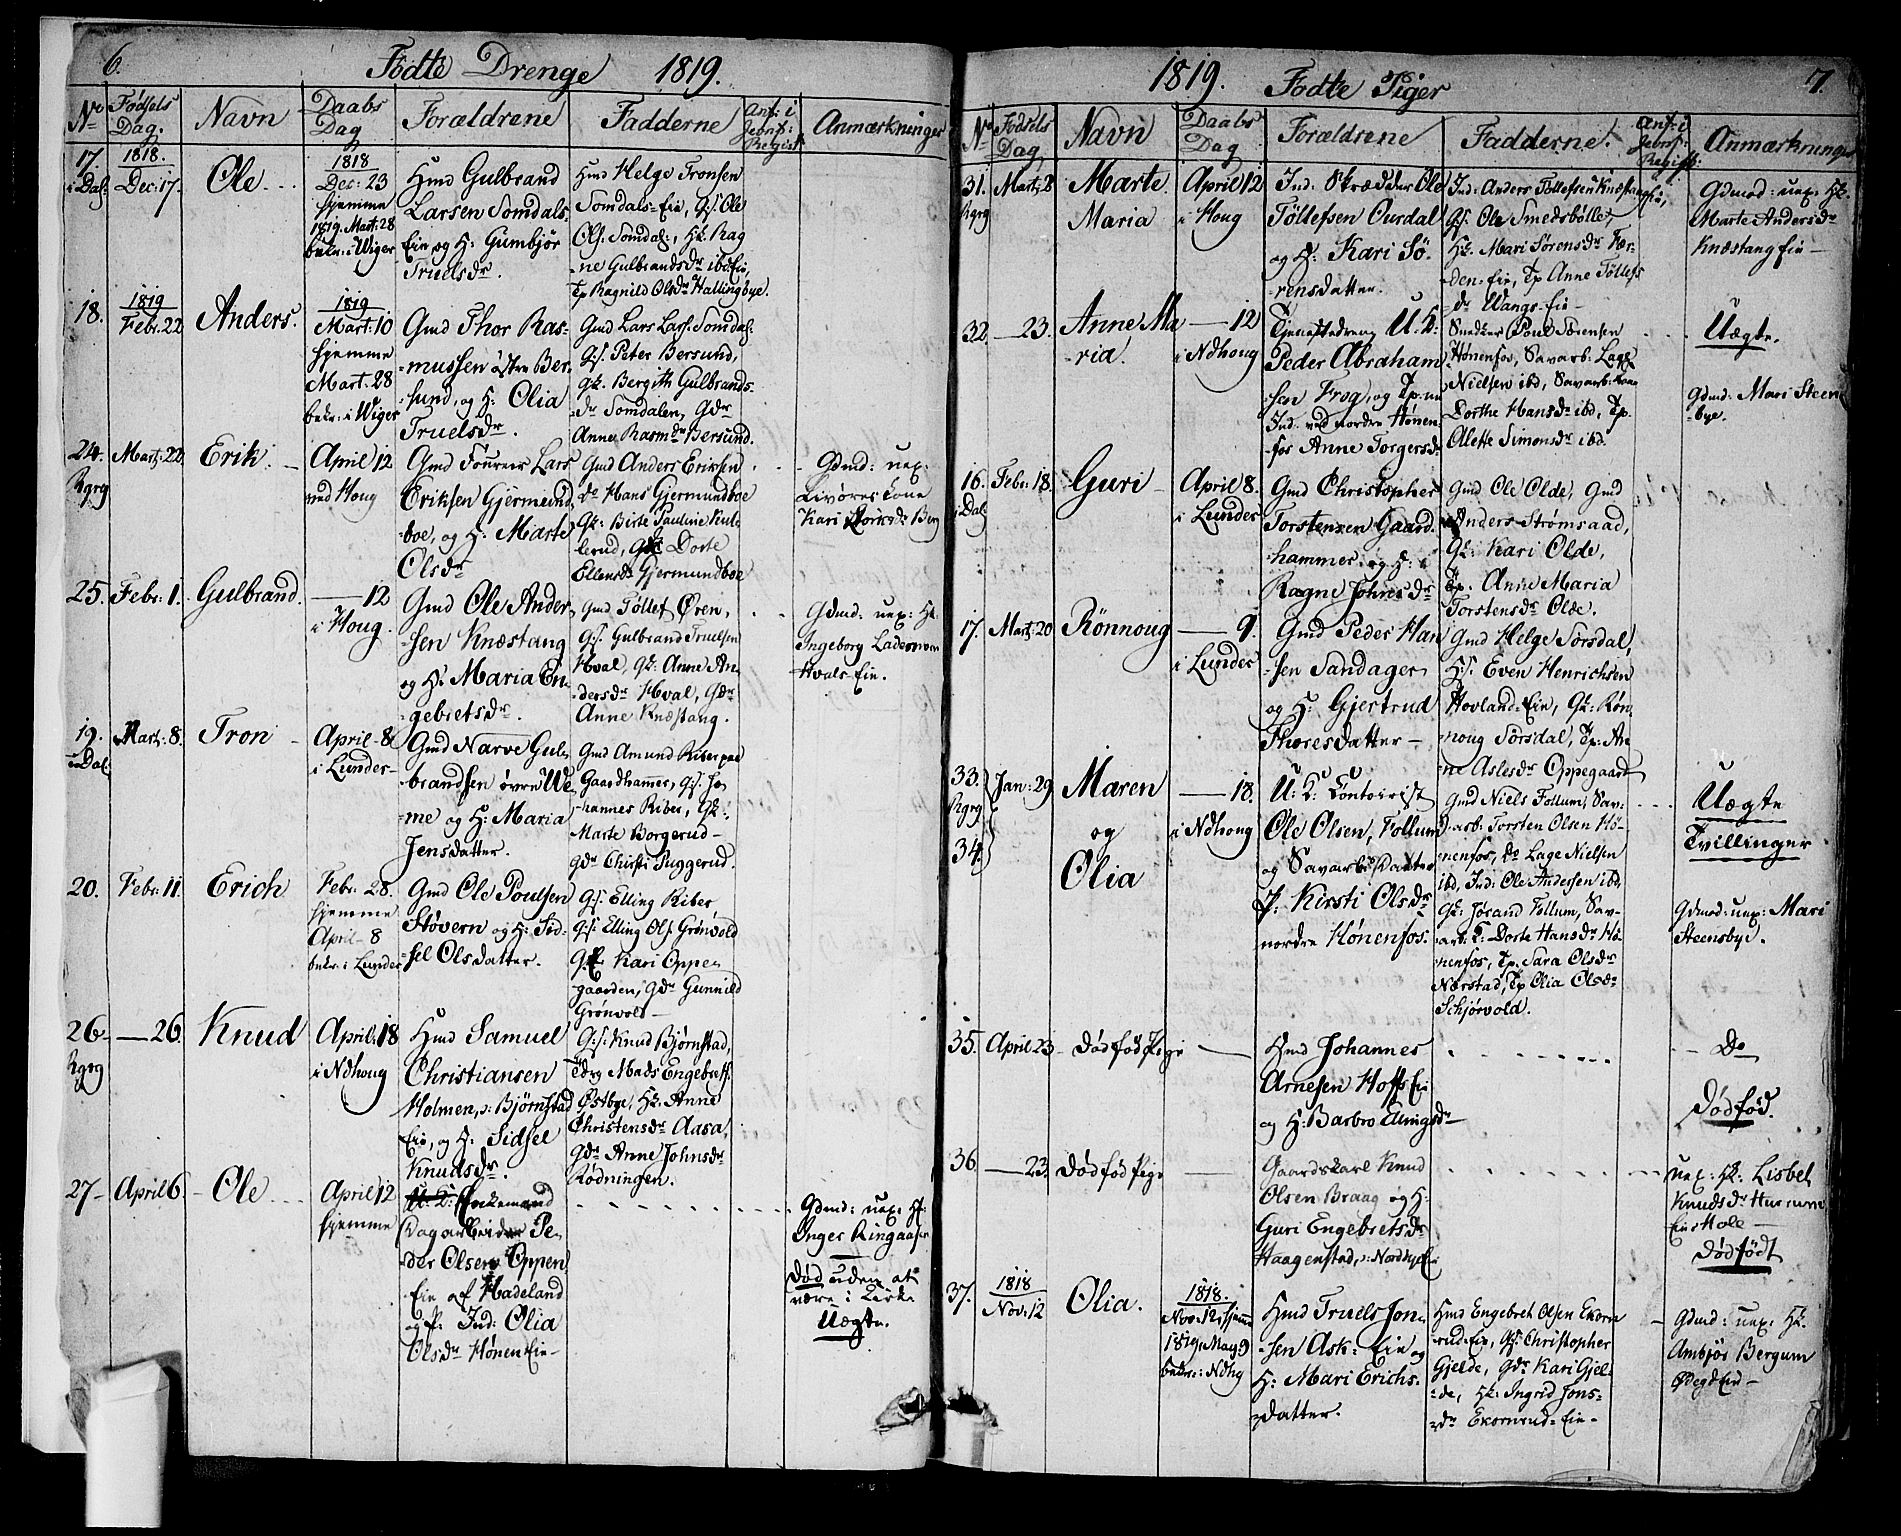 6.
Fødte Drenge 1819.
No
Fødsels Dag.
Navn
Daabs Dag
Forældrene
Fadderne
Anf: i Jevnf: Regist.
Anmærkninger
17. i Dal:
1818. Dec: 17.
Ole
1818
Dec: 23
hjemme
1819. Mart: 28
bekr: i Wiger
Hmd Gulbrand
Larsen Somdals-
Eie og H: Gumbjør
Truelsdr.
Hmd Helge Tronsen
Somdals-Eie, Gs: Ole
Ols: Somdal:, Hk: Rag
-ne Gulbrandsdr ibd Eie,
Tp Ragnild Olsdr Hallingbye.
18.
1819 Febr: 22
Anders.
1819
Mart: 10
hjemme
Mart: 28
bekr: i Wiger
Gmd Thor Ras-
-mussen østre Ber-
-sund, og H: Olia
Truelsdr.
Gmd Lars Lars: Somdal:
Gs: Peter Bersund,
Gk: Bergith Gulbrands-
-dr Somdalen, Gdr
Anne Rasmdr Bersund.
24. Rgrg
Mart: 22
Erik.
April 12
ved Houg
Gmd Fourer Lars
Eriksen Gjermund-
-boe, og H: Marte
Olsdr
Gmd Anders Eriksen
do Hans Gjermundboe
Gk: Birte Pauline Kul-
-lerud, Gdr Dorte
Ellensdr Gjermundboe
Gdmd: uex:
Livøres Kone
Kari Borisdr Berg
25.
Febr: 1.
Gulbrand.
— 12
i Houg.
Gmd Ole Ander-
-sen Knæstang
og H: Maria En-
-gebretsdr.
Gmd Tøllef Øren,
Gs: Gulbrand Truelsen
Hval, Gk: Anne An-
-dersdr Hval, Gdr
Anne Knæstang.
Gdmd: uex: Hk:
Ingeborg Lademoen
Hvals-Eie.
19. i Dal:
Mart: 8.
Tron
April 8
i Lunder
Gmd Narve Gul-
-brandsen øvre We-
-me og H: Maria
Jensdatter.
Gmd Amund Riber paa
Gaardhammer, Gs: Jo-
-hannes Riber, Gk:
Marte Borgerud
Gdr Christi Juggerud.
20.
Febr: 11.
Erich
Febr: 28.
hjemme
April 8
bekr: i Lunder
Gmd Ole Poulsen
Støvern og H: Sid-
-sel Olsdatter.
Gs: Elling Riber
Gs: Elling Ols: Grønvold
Gk Kari Oppe-
gaarden, Gdr Gunnild
Grønvold
26 Rgrg
— 26.
Knud
April 18
i Ndhoug
Hmd Samuel
Christiansen
Holmen, : Bjørnstad
Eie, og H: Sidsel
Knudsdr.
Gs: Knud Bjørnstad,
Tdrg Mads Engebrets:
Østbye, Hk: Anne
Christensdr Aasa,
Gdr Anne Johnsdr
Rødningen.
27
April 6.
Ole
April 12
hjemme
Enkemand
Dagarbeider Pe-
-der Olsen Oppen
Eie af Hadeland
og P: Ind: Olia
Olsdr Hønen Eie
Gdmd: uex: Hk:
Inger Ringaaser
Død uden at
være i Kirke
Uægte.
7.
1819. Fødte Piger
No
Fødsels Dag
Navn
Daabs Dag
Forældrene
Fadderne.
Anf: i Jevnf: Regist:
Anmærkninger
31. Rgrg
Mart: 8
Marte
Maria
April 12
i Houg
Ind: Skrædder Ole
Tøllefsen Ourdal
og H: Kari Sø-
-rensdatter.
Ind: Anders Tøllefsen Knæstang Eie,
Gs: Ole Smedsbølle
Hk: Mari Sørensdr Fær-
den-Eie, Tp Anne Tøllefs
dr Wangs-Eie
Gdmd: uex: Hk:
Marte Andersdr
Knæstang Eie
32.
— 23.
Anne Ma
-ria.
— 12
i Ndhoug
Tjenestedreng U: K:
Peder Abraham
-sen Frog, og Tp:
Ind: ved nordre Hønen-
fos Anne Torgersdr
Snedker Poul Sørensen
Hønenfos, Savarb: Lage
Nielsen ibd, Savarb: Kone
Dorthe Hansdr ibd, Tp:
Alette Simonsdr ibd.
Uægte.
Gdmd: Mari Steens
-bye.
16. i Dal:
Febr: 18.
Guri
April 8.
i Lunder
Gmd Christopher
Torstensen Gaard-
-hammer og H:
Ragne Johnsdr
Gmd Ole Olde, Gmd
Anders Strømsaad,
Gk: Kari Olde,
Tp. Anne Maria
Torstensdr Olde.
17.
Mart: 20
Rønnoug
— 9.
i Lunder
Gmd Peder Han
-sen Sandager
og H: Gjertrud
Thoresdatter
Gmd Helge Sørsdal,
Hs: Even Henrichsen
Hovland-Eie, Gk: Røn-
-noug Sørsdal, Tp: An
ne Aslesdr Oppegaard
33. Rgrg 34.
Jan: 29
Maren
og
Olia
— 18.
i Ndhoug
U: K: Contoirist
Ole Olsen, Follum
og Savarb: Datter
P: Kirsti Olsdr
nordre Hønenfos.
Gmd Niels Follum, Sav-
-arb: Torsten Olsen Hø-
-nenfos, do Lage Nielsen
ibd, Ind: Ole Andersen ibd,
Gk: Jørand Follum, Sav-
arb: K: Dorte Hansdr Hø-
-nenfos, Tp. Sara Olsdr
Nærstad, Tp Olia Olsdr
Schjørvold.
Uægte
Tvillinger
Gdmd: uex: Mari
Steensbye.
35.
April 23
Dødfød Pige
Hmd Johannes
Arnesen Hoffs Eie
og H: Barbro Ellingsdr
Do
Dødfød.
36.
— 23.
Dødfød Pige
Gaardskarl Knud
Olsen Braag og H:
Guri Engebretsdr
Haagenstad, : Nordbye Eie
uex: Hk: Lisbet
Knudsdr Hurum
Eie Hole
Dødfødt
37.
1818 Nov: 12
Olia.
1818.
Nov: 12 hjemme
1819, May 9
bekr: i Ndhg
Hmd Truels Jon-
-sen Ask: Eie og
H: Mari Erichs-
-datter.
Hmd Engebret Olsen Ekorn
-rud-Eie, Gs: Christopher
Gjelde, Gdr Kari Gjel-
-de, Hk: Ingrid Jons-
-dr Ekornrud-Eie
Gdmd: uex: Hk:
Ambjør Bergum
Ødegd Eie